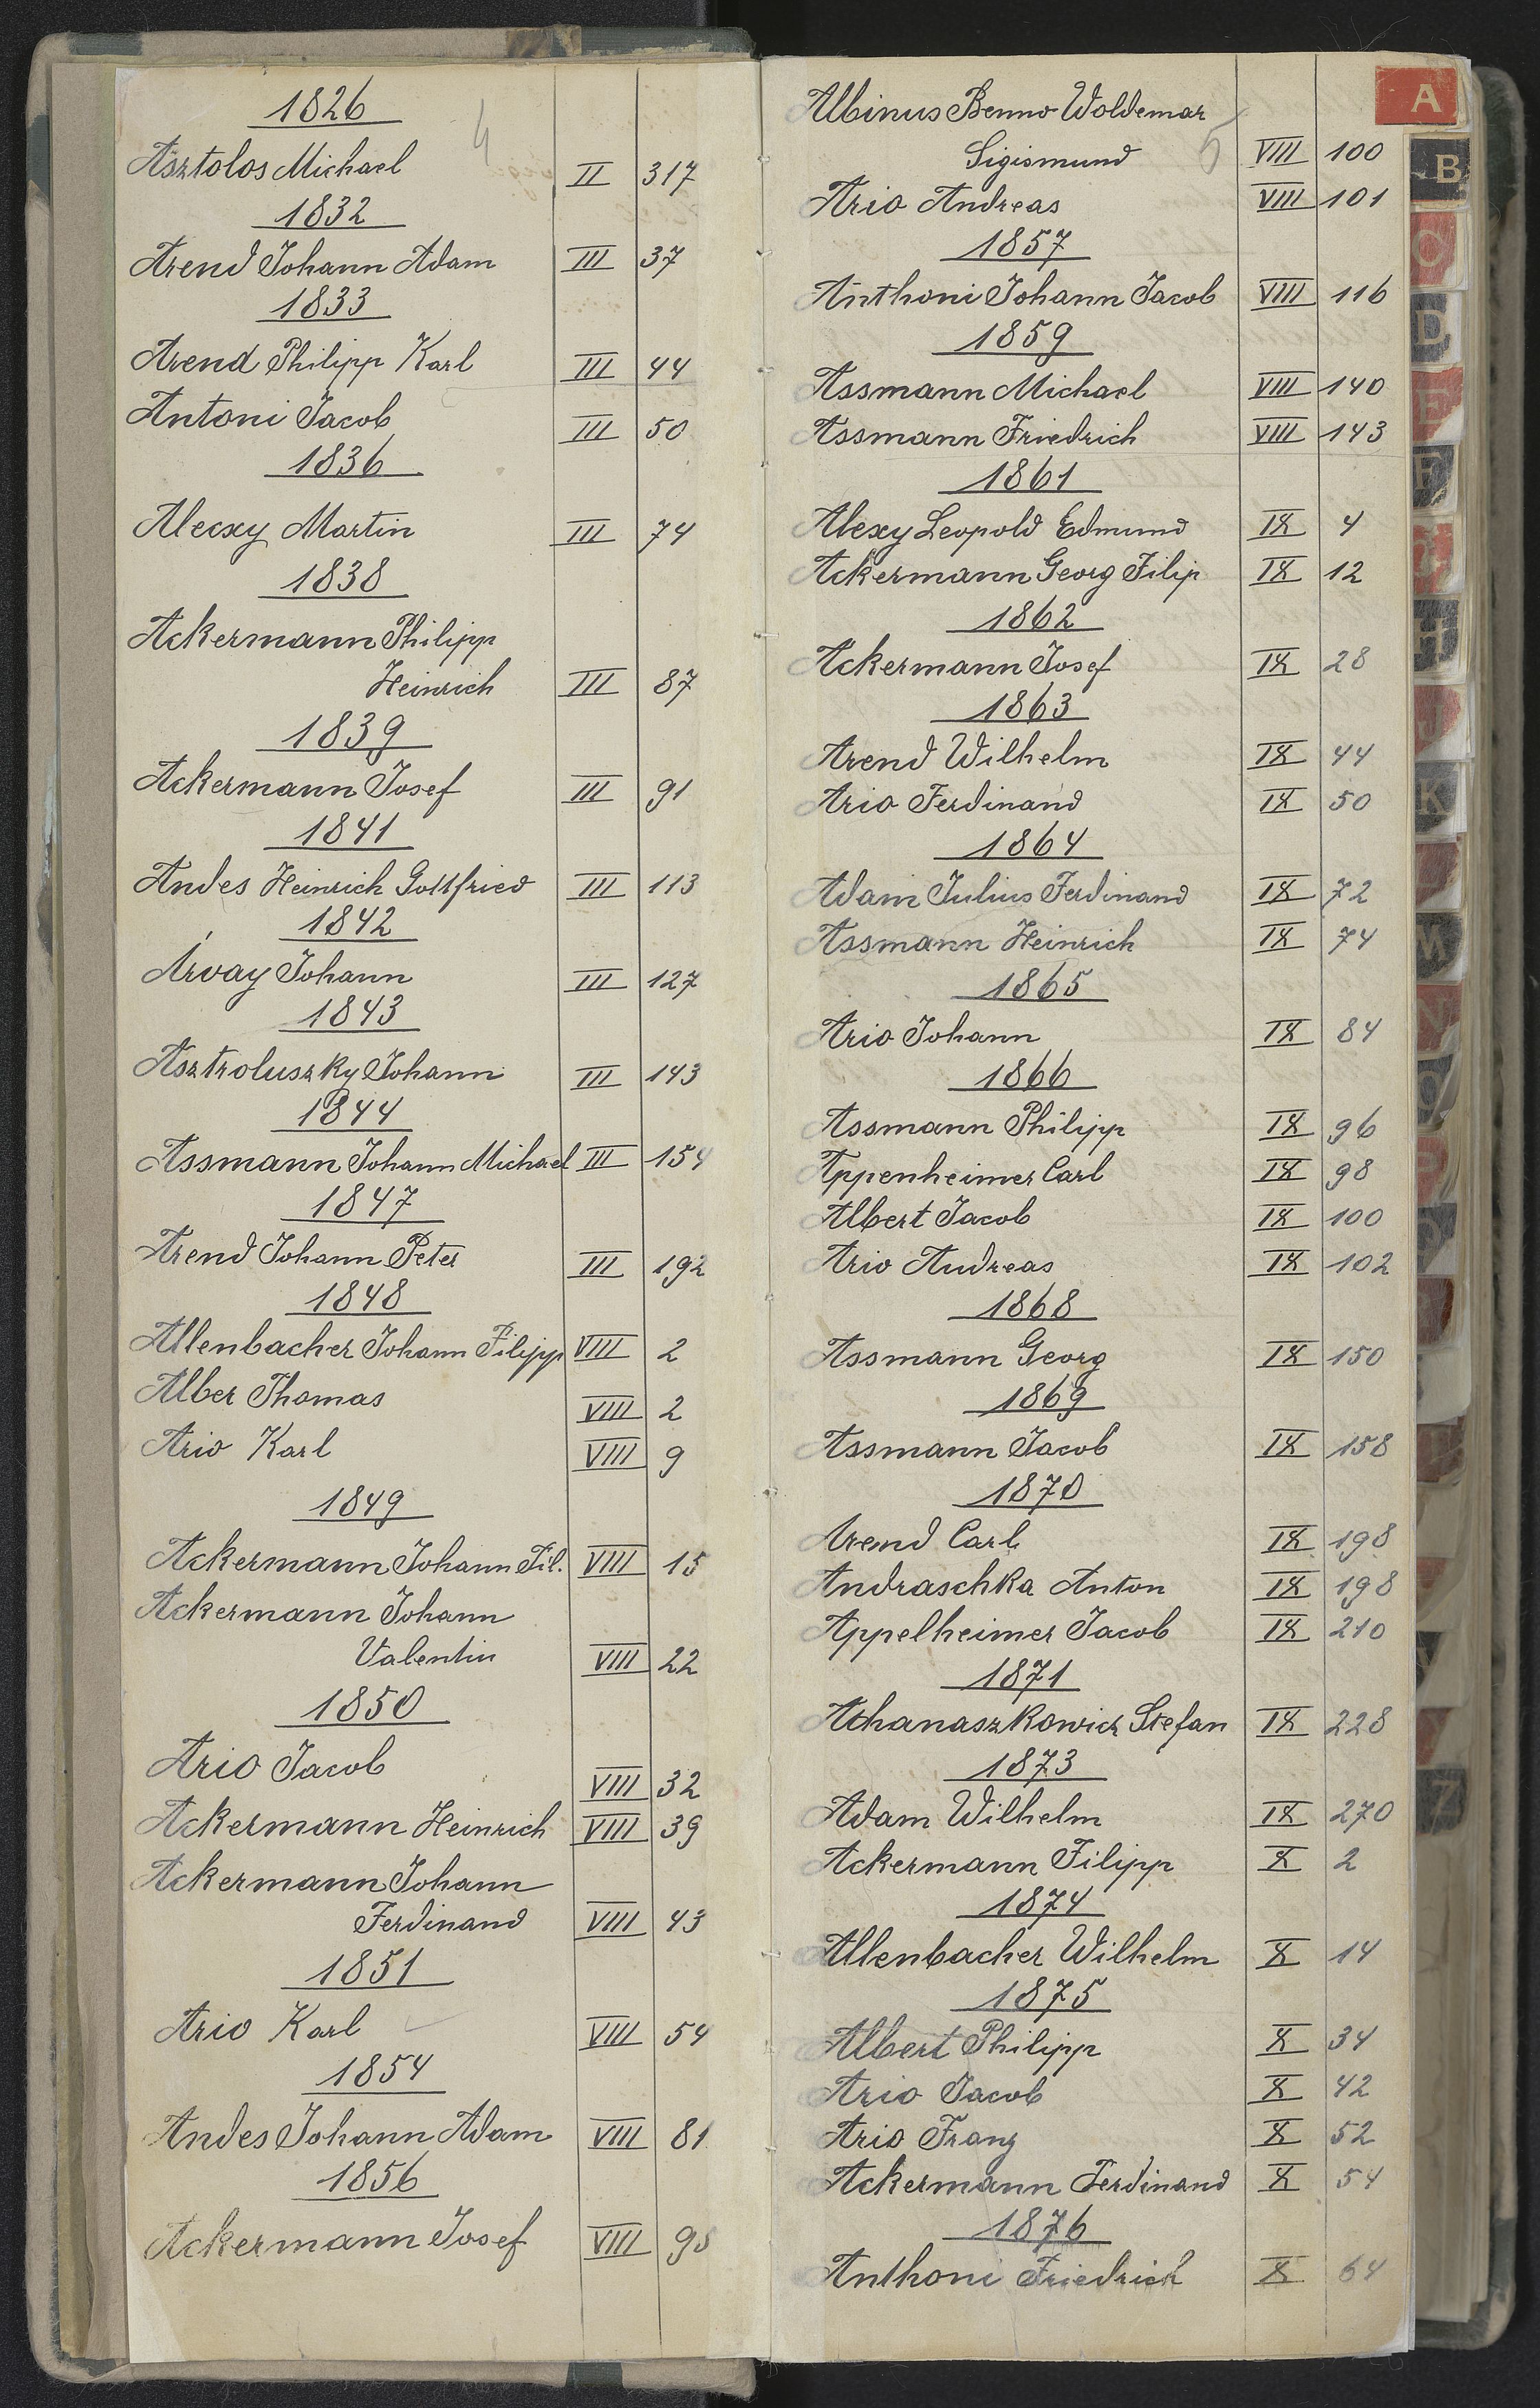 4
1826
Asztolos Michael II 317
1832
Arend Johann Adam III 37
1833
Arend Philipp Karl III 44
Antoni Jacob III 50
1836
Alecxy Martin III 74
1838
Ackermann Philipp
Heinrich III 87
1839
Ackermann Josef III 91
1841
Andes Heinrich Gottfried III 113
1842
Árvay Johann III 127
1843
Asztroluszky Johann III 143
1844
Assmann Johann Michael III 154
1847
Arend Johann Peter III 192
1848
Allenbacher Johann Filipp VIII 2
Alber Thomas VIII 2
Ario Karl VIII 9
1849
Ackermann Johann Fil. VIII 15
Ackermann Johann
Valentin VIII 22
1850
Ario Jacob VIII 32
Ackermann Heinrich VIII 39
Ackermann Johann
Ferdinand VIII 43
1851
Ario Karl VIII 54
1854
Andes Johann Adam VIII 81
1856
Ackermann Josef VIII 98
5
Albinus Benno Woldemar
Sigismund VIII 100
Ario Andreas VIII 101
1857
Anthoni Johann Jacob VIII 116
1859
Assmann Michael VIII 140
Assmann Friedrich VIII 143
1861
Alexy Leopold Edmund IX 4
Ackermann Georg Filip IX 12
1862
Ackermann Josef IX 28
1863
Arend Wilhelm IX 44
Ario Ferdinand IX 50
1864
Adam Julius Ferdinand IX 72
Assmann Heinrich IX 74
1865
Ario Johann IX 84
1866
Assmann Philipp IX 96
Appenheimer Carl IX 98
Albert Jacob IX 100
Ario Andreas IX 102
1868
Assmann Georg IX 150
1869
Assmann Jacob IX 158
1870
Arend Carl IX 198
Andraschka Anton IX 198
Appelheimer Jacob IX 210
1871
Athanaszkowicz Stefan IX 228
1873
Adam Wilhelm IX 270
Ackermann Filipp X 2
1874
Allenbacher Wilhelm X 14
1875
Albert Philipp X 34
Ario Jacob X 42
Ario Franz X 52
Ackermann Ferdinand X 54
1876
Anthoni Friedrich X 64
A
B
C
D
E
F
H
J
K
M
N
O
P
Z